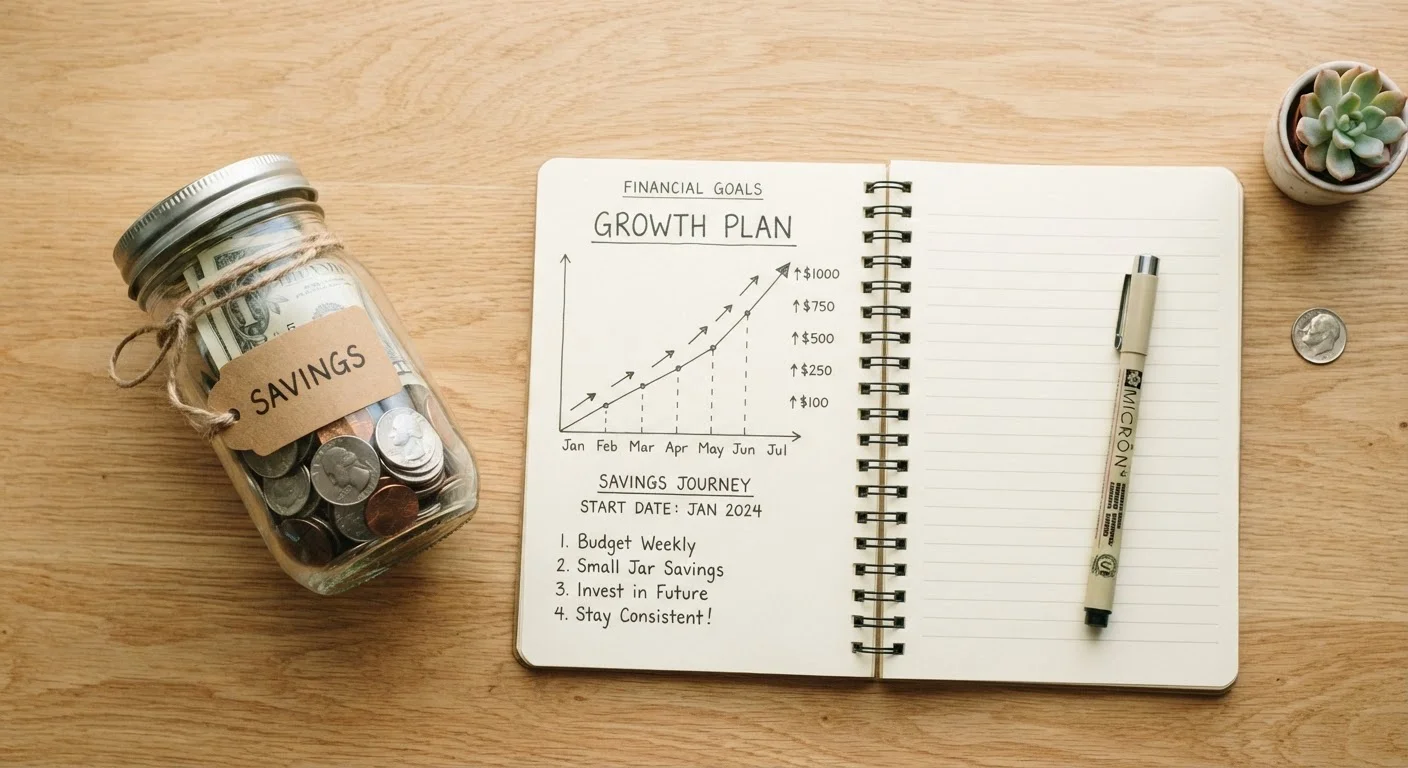 SAVINGS
FINANCIAL GOALS
GROWTH PLAN
↑$1000
↑$750
↑$500
↑$250
↑$100
Jan Feb Mar Apr May Jun Jul
SAVINGS JOURNEY
START DATE: JAN 2024
1. Budget Weekly
2. Small Jar Savings
3. Invest in Future
4. Stay Consistent!
MICRON